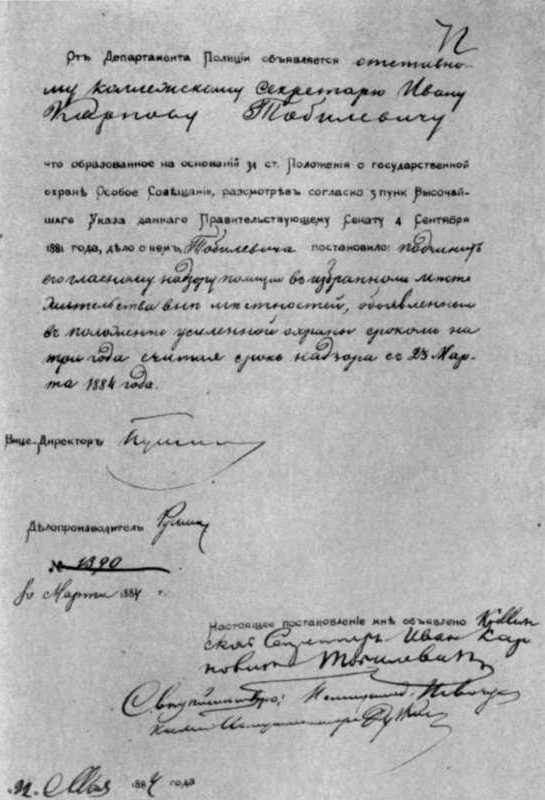 Отъ Департамента Полиціи объявляется отставно-
му коллежскому секретарю Ивану
Карпову Тобилевичу
что образованное на основаній 34 ст. Положенія о государственной
охранѣ Особое Совѣщаніе, разсмотрѣвъ согласно 3 пунк Высочай-
шаго Указа даннаго Правительствующему Сенату 4 Сентября
1881 года, дѣло о немъ, Тобилевича постановило: подчинить
его гласному надзору полиціи въ избранномъ мѣстѣ
жительства внѣ мѣстностей, объявленныхъ
въ положеніи усиленной охраны срокомъ на
три года считая срокъ надзора съ 23 Мар-
та 1884 года.
Вице-Директоръ
Дѣлопроизводитель
№ 1390
Марта 1884 г.
Настоящее постановленіе мнѣ объявлено Коллеж-
скій Секретарь Иван Кар
пович Тобилевич
Мая 1884 года